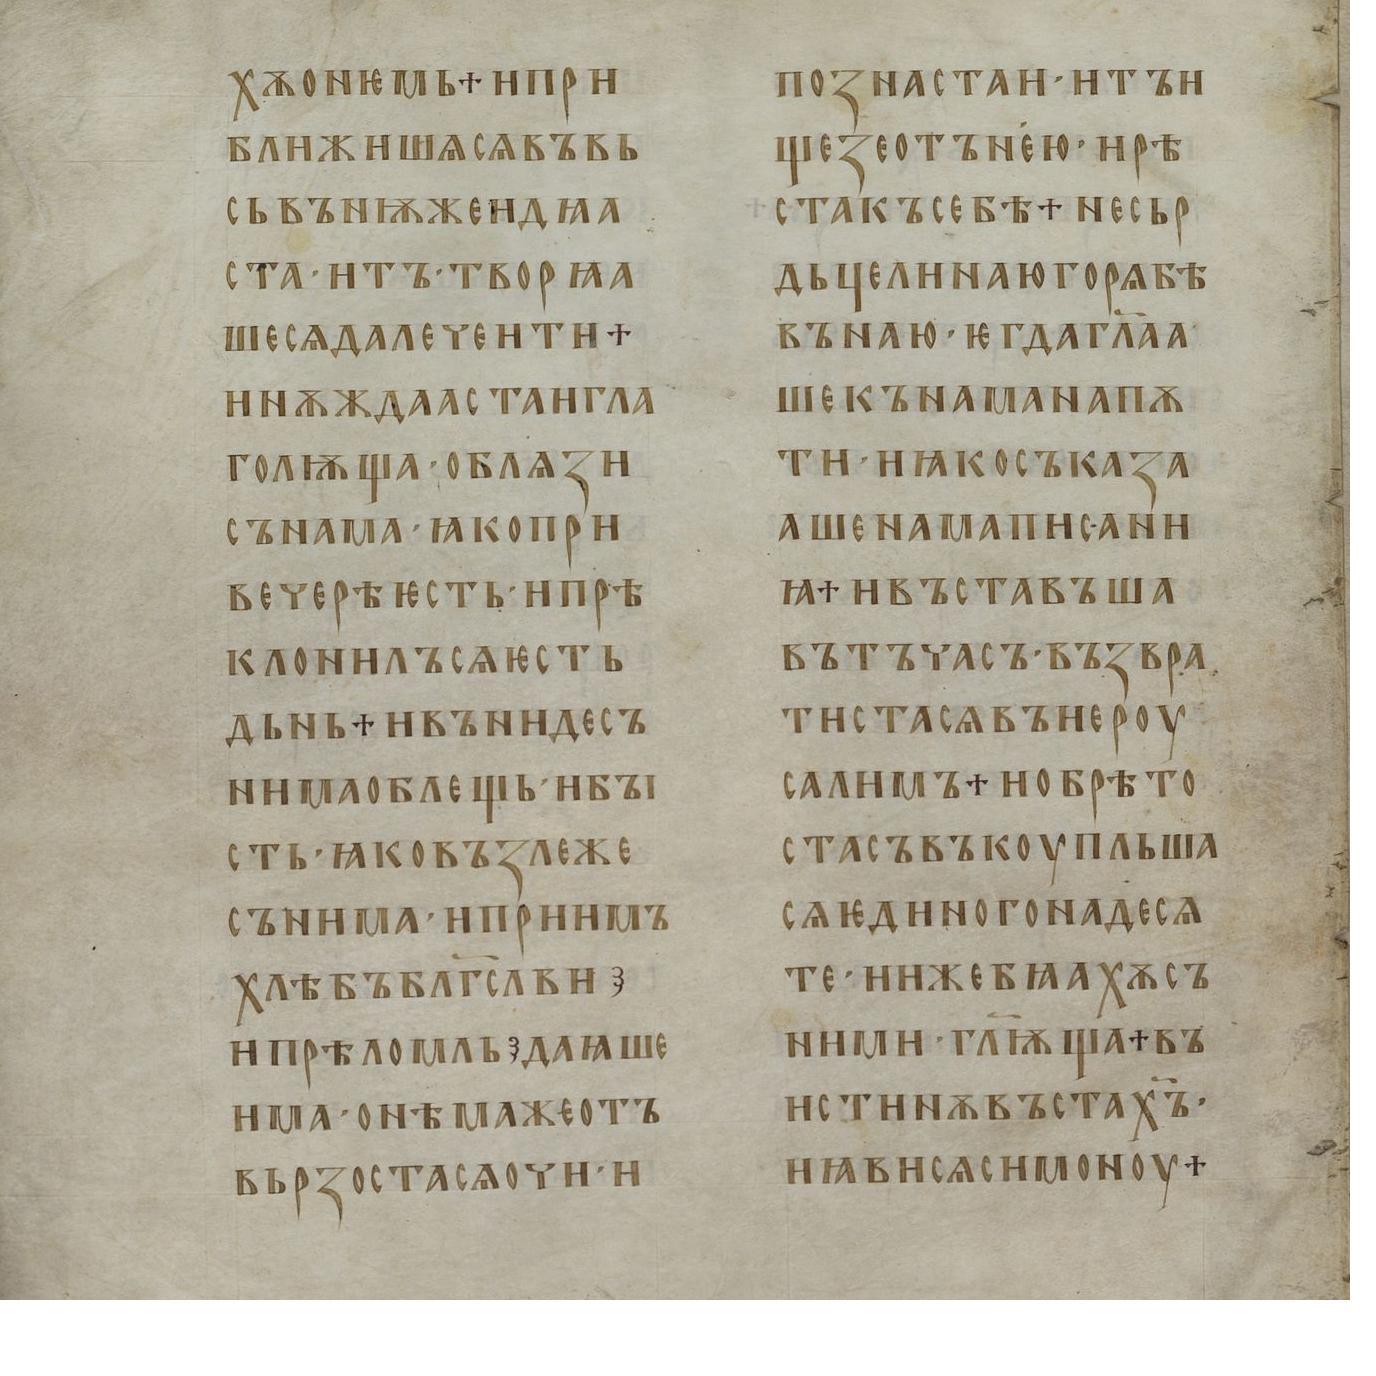 хѫонѥмь+ипри
ближишѧсѧвъвь
сьвънѭжеидꙗа
ста·итъ·творꙗа
шесѧдалечеити+
инѫждаастаигла
голѭща·облѧзи
сънама·ꙗкопри
вечерѣѥсть·ипрѣ
клонилъсѧѥсть
дьнь+ивънидесъ
нимаоблещь·ибꙑ
сть·ꙗковъзлеже
сънима·ипринмъ
хлѣбъблагс҃лви ꙁ
ипрѣломль ꙁ даꙗше
има·онѣмажеотъ
вьрзостасѧочи·и
познастаи·итъи
щезеотънею·ирѣ
стакъсебѣ+несьр
дьцелинаюгорѧбѣ
вънаю·ѥгдагл҃аа
шекънаманапѫ
ти·иꙗкосъказа
ашенамаписани
ꙗ+ивъставъша
вътъчасъ·възвра
тистасѧвъиероу
салимъ+иобрѣто
стасъвъкоупльша
сѧѥдиногонадесѧ
те·иижебꙗахѫсъ
ними·гл҃ѭща+въ
истинѫвъстах҃ъ·
иꙗвисѧсимоноу+